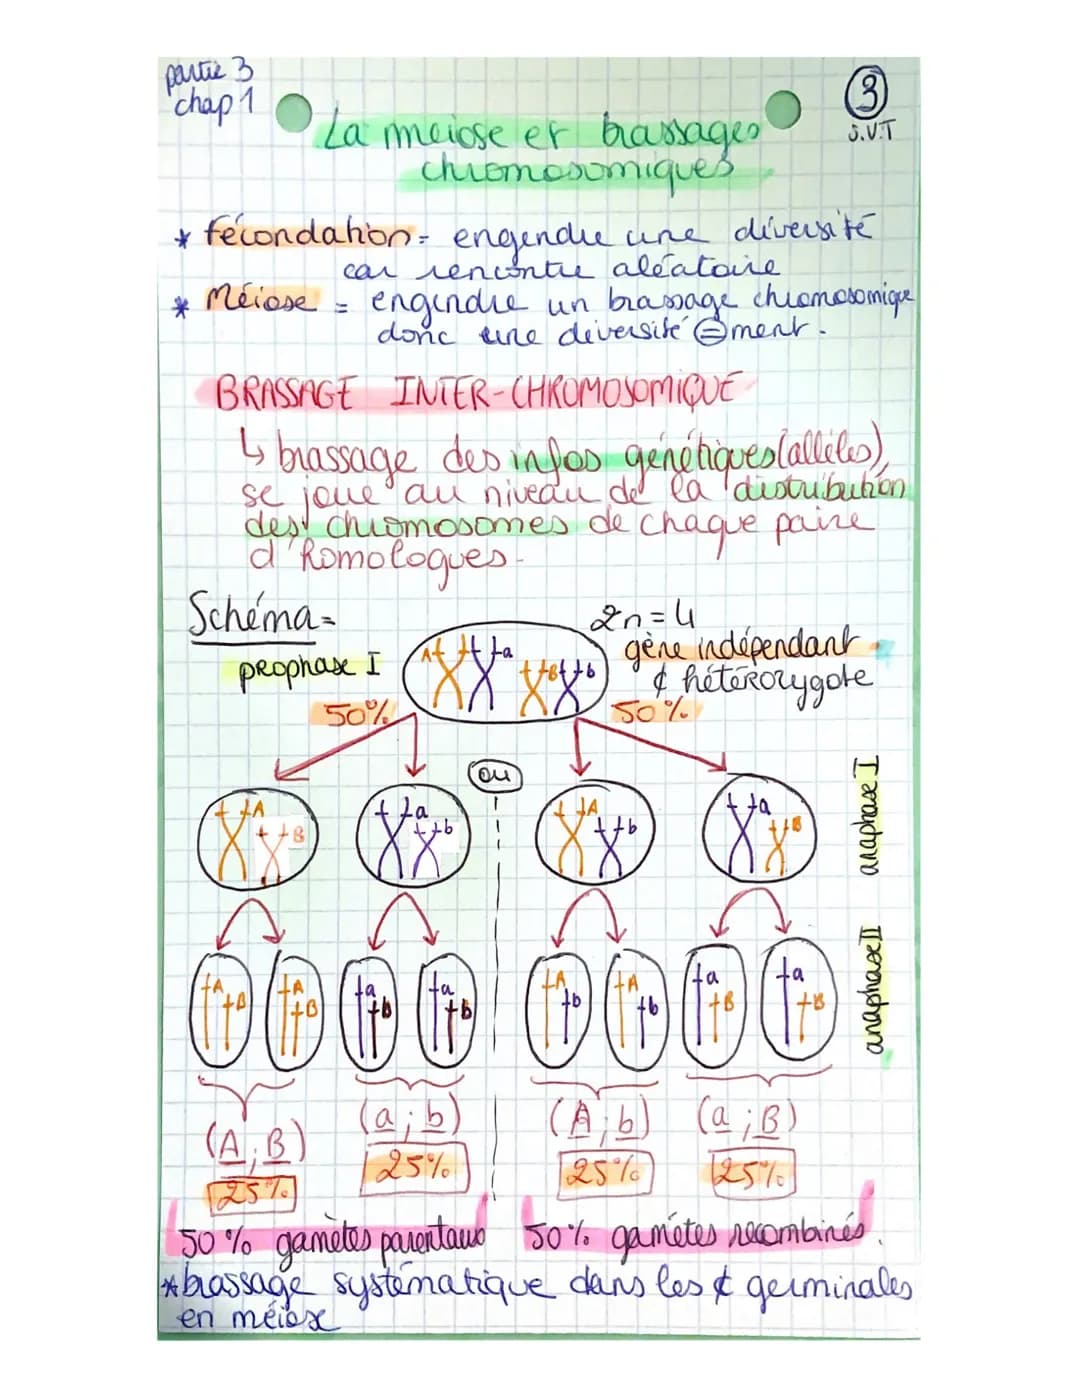 partie 3
chap 1
3
S.V.T
La meiose et brassages
chromosomiques
* fécondation = engendre une diversité
car rencontre aléatoire
* Méiose = engendre un brassage chromosomique
donc une diversité =ment.
BRASSAGE INTER-CHROMOSOMIQUE
↳ brassage des infos génétiques (allèles)
se joue au niveau de la distribution
des chromosomes de chaque paire
d'homologues.
Schéma =
2n = 4
gène indépendant
¢ hétérozygote
prophase I
A a B b
50% 50%
ou
A B a b A b a B
anaphase I
A B A B a b a b A b A b a B a B
anaphase II
(A ; B) (a ; b) (A ; b) (a ; B)
25% 25% 25% 25%
50% gamètes parentaux 50% gamètes recombinés.
* brassage systématique dans les ¢ germinales
en méiose